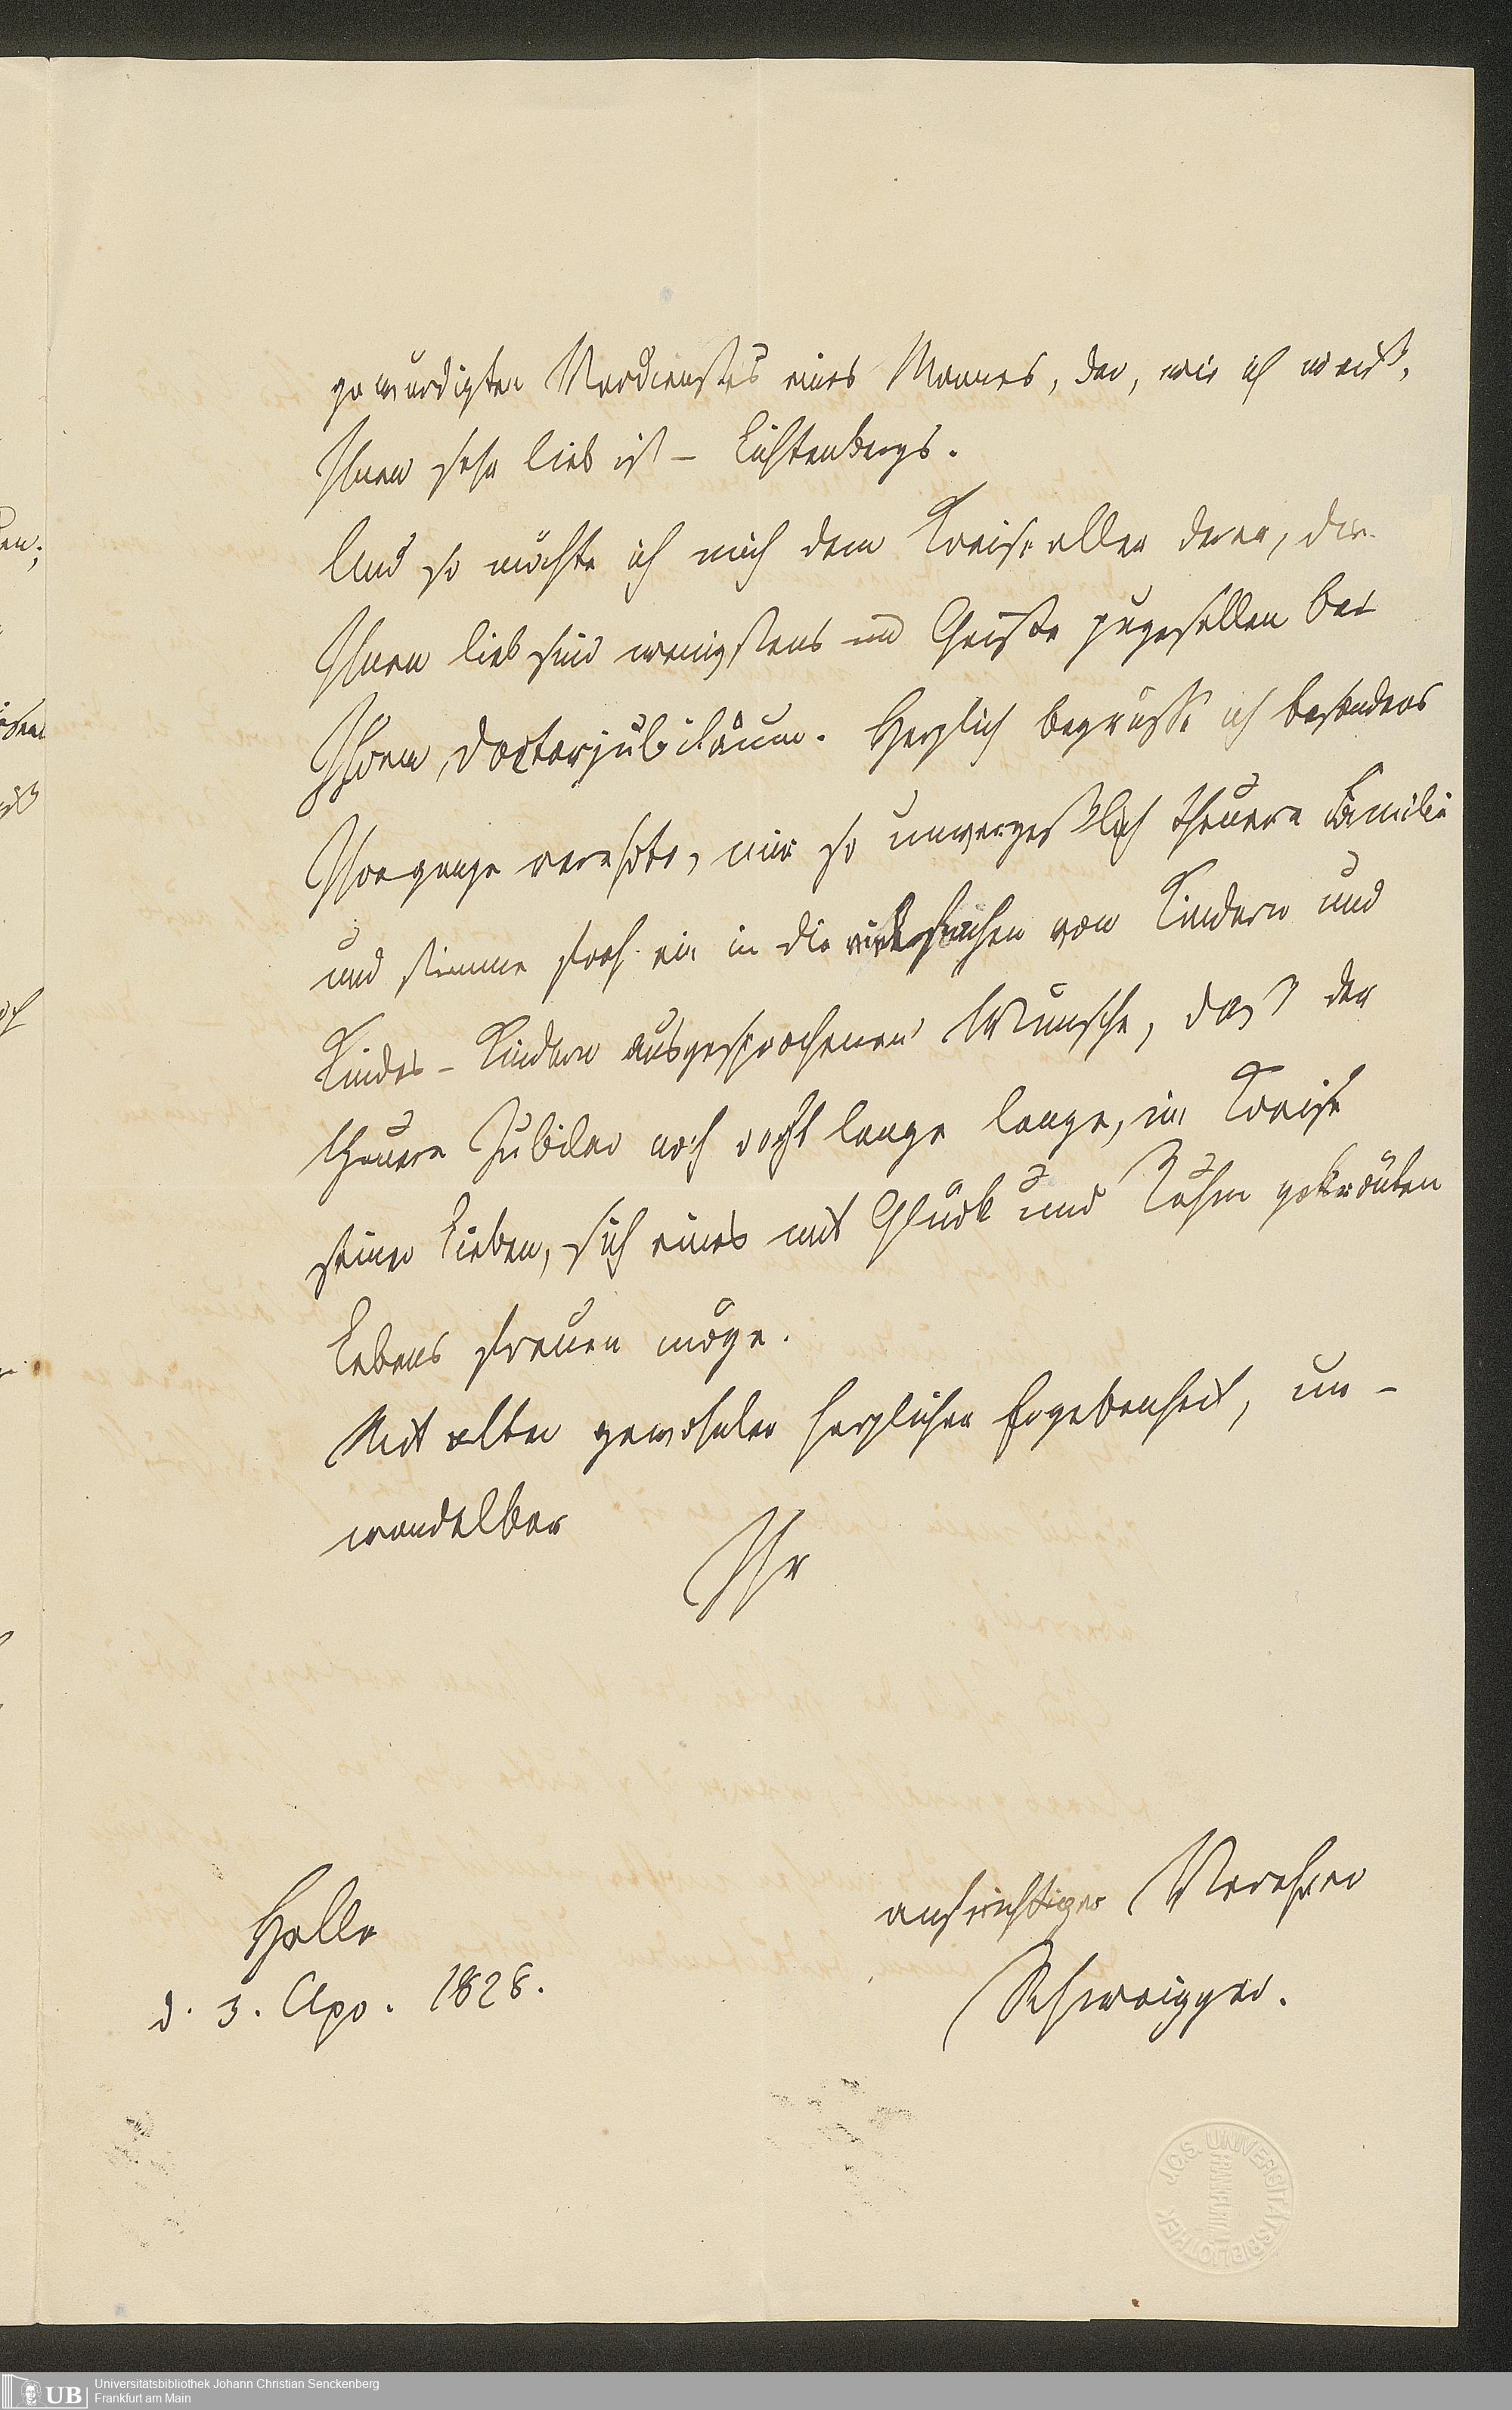 gewürdigten Verdienstes eines Mannes, der, wie ich weiß,
Ihnen sehr lieb ist – Lichtenbergs.
Und so möchte ich mich dem Kreise aller derer, die
Ihnen lieb sind wenigstens im Geiste zugesellen bei
Ihrem Doctorjubiläum. Herzlich begrüsse ich besonders
Ihre ganze verehrte, mir so unvergeßlich theuere Familie
und stimme froh ein in die vielfachen von Kindern und
Kindes-Kindern ausgesprochenen Wünsche, daß der
theuere Jubilar noch recht lange lange, im Kreise
seiner Lieben, sich eines mit Glück und Ruhm gekrönten
Lebens freuen möge.
Mit alter gewohnter herzlicher Ergebenheit, un-
wandelbar
Ihr
aufrichtiger Verehrer
Schweigger.
Halle
d. 3. Apr. 1828.
J.C.S. UNIVERSITÄTSBIBLIOTHEK
FRANKFURT/M.
UB
Universitätsbibliothek Johann Christian Senckenberg
Frankfurt am Main